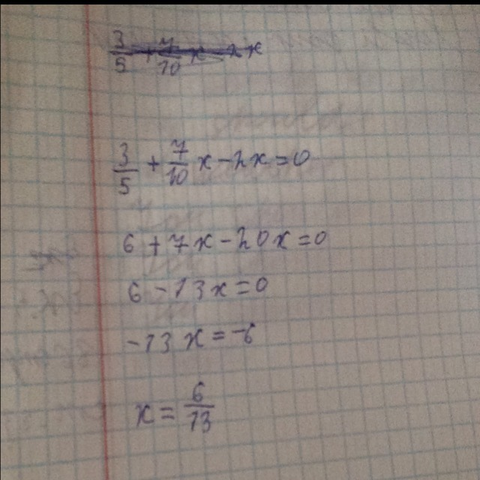 3/5 + 7/10 x - 2x
3/5 + 7/10 x - 2x = 0
6 + 7x - 20x = 0
6 - 13x = 0
-13x = -6
x = 6/13